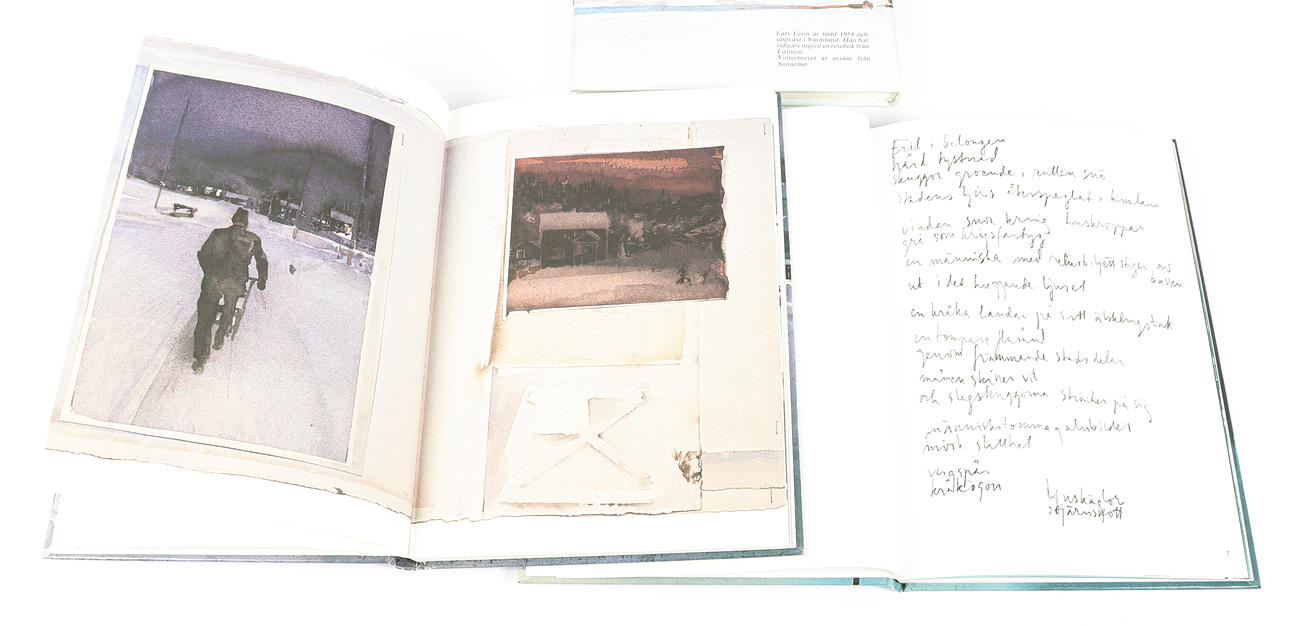 Lars Lerin är född 1954 och
uppväxt i Värmland. Han har
tidigare utgivit en resebok från
Lofoten.
Vinterbrevet är avsänt från
Sunnemo.
Frid i betongen
hård tystnad
skuggor groende i rutten snö
stadens ljus återspeglat i himlen
vinden snor kring huskroppar
grå som krigsfartyg
en människa med returbiljett stiger av
bussen
ut i det huggande ljuset
en kråka landar på sitt älsklingstak
en tompåse
genom främmande stadsdelar
månen skiner vit
och slagskuggorna sträcker på sig
människotomma gatubilder
mörk stillhet
vägspår
kråkögon
ljuskäglor
stjärnskott
7